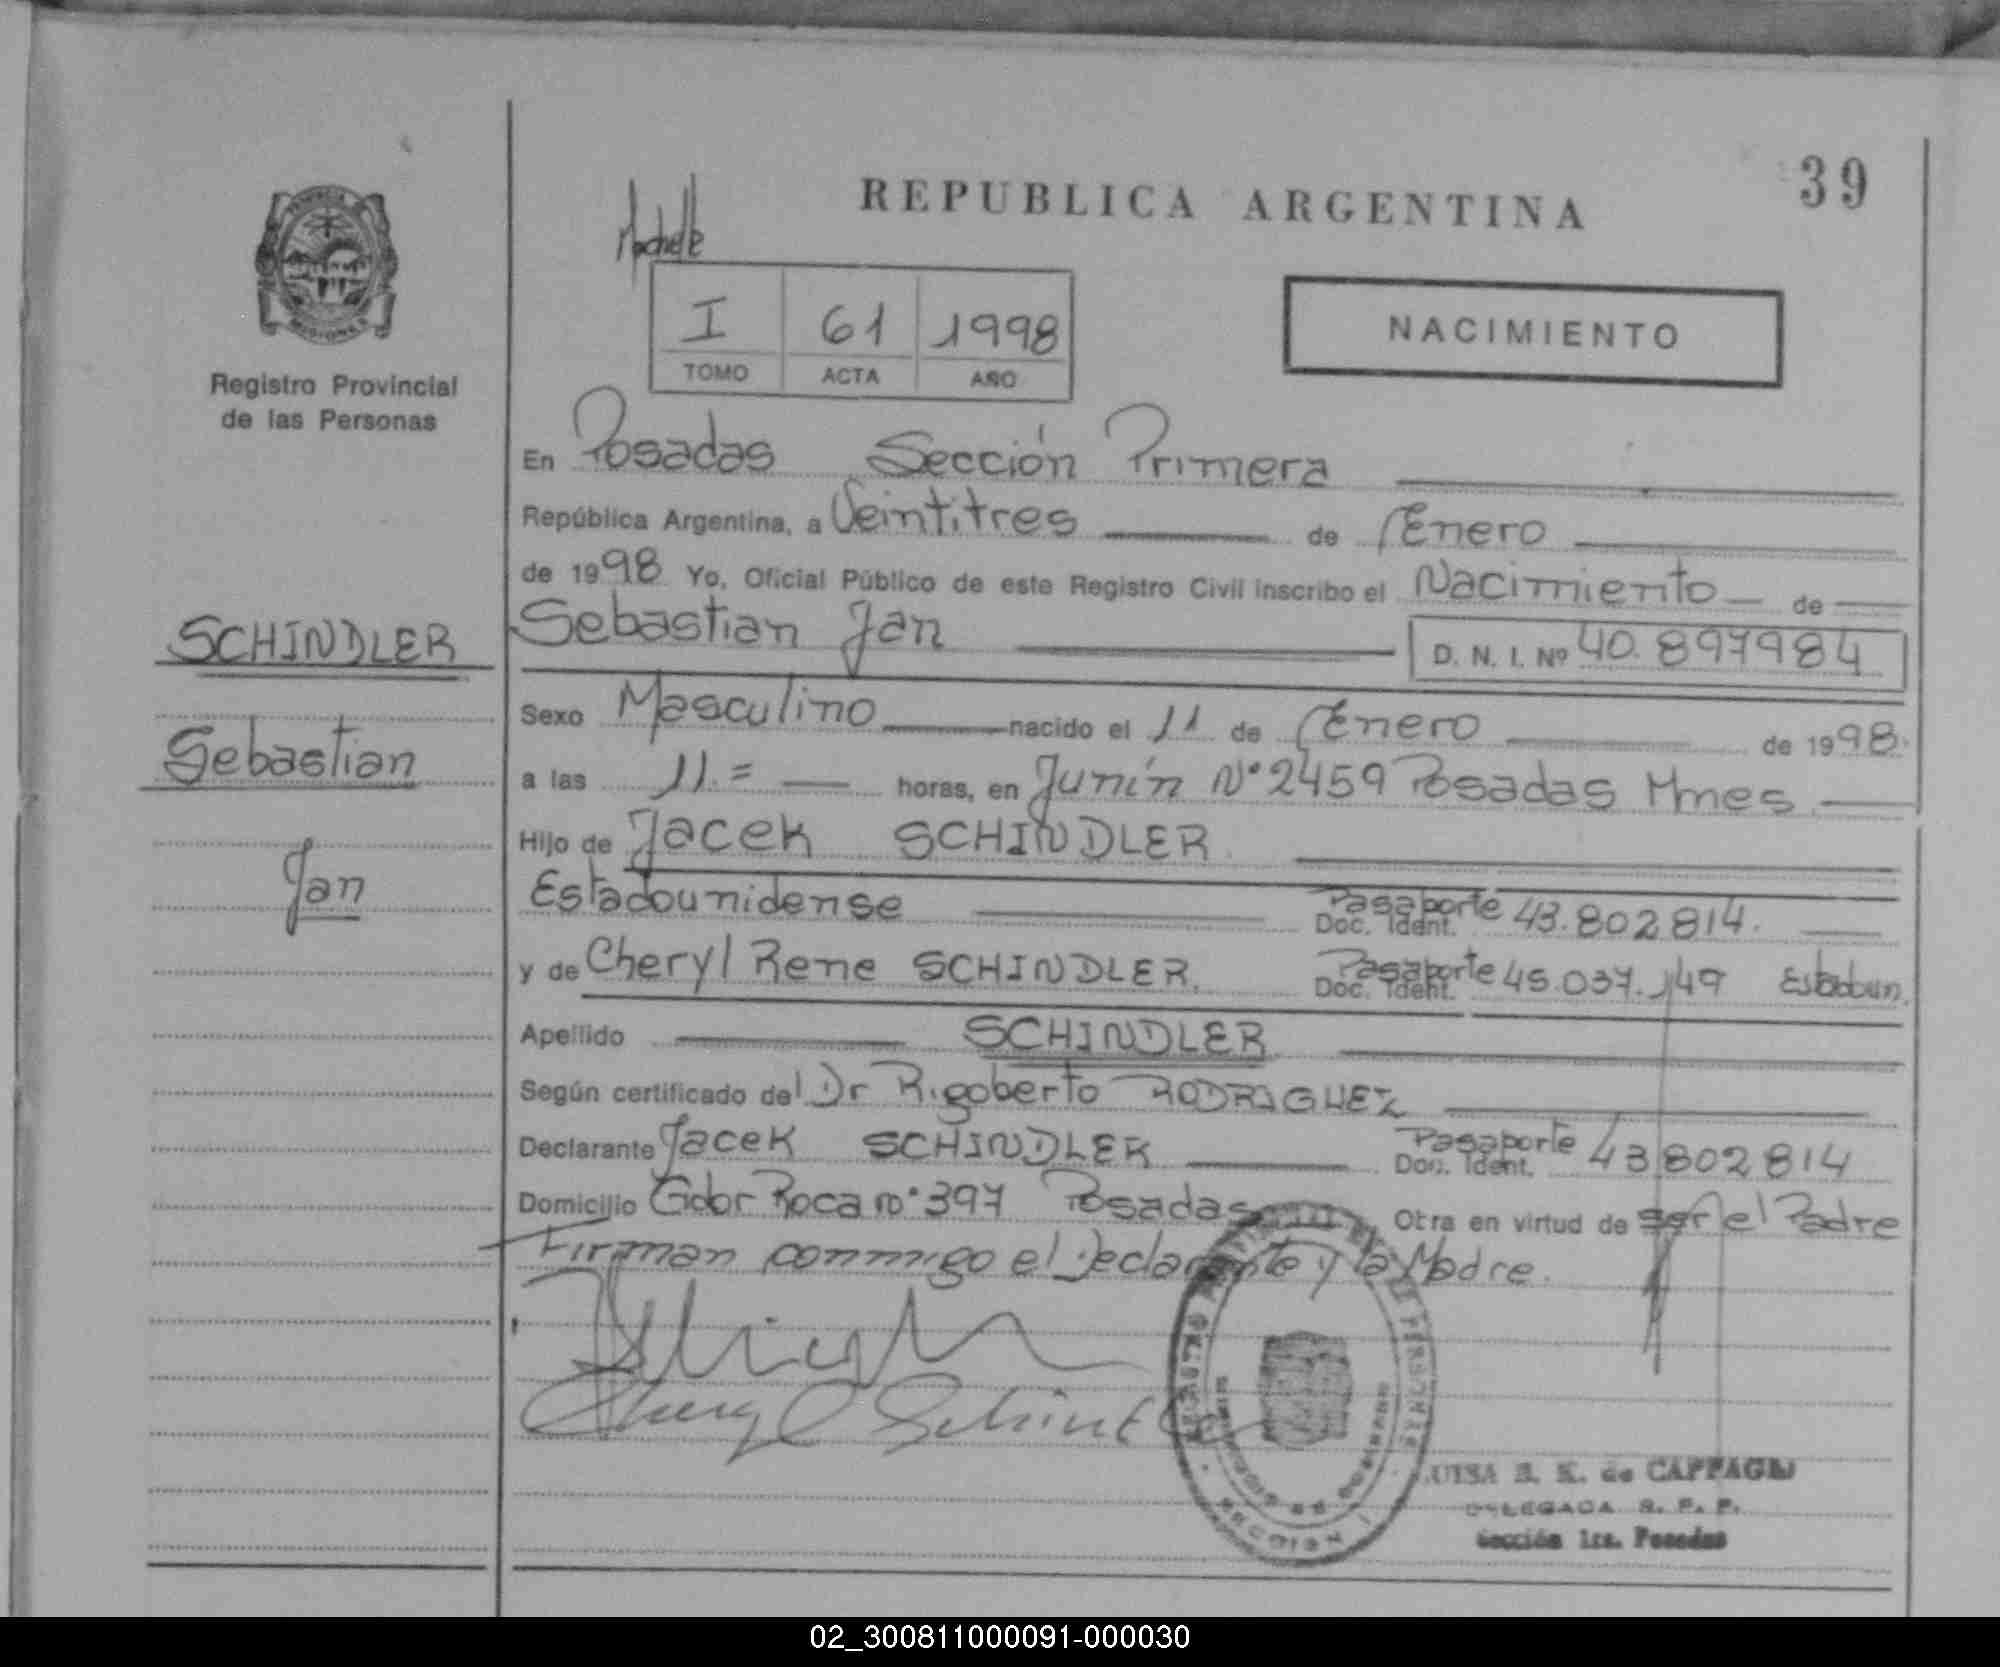 39
REPUBLICA ARGENTINA
MISIONES
Registro Provincial
de las Personas
I 61 1998
TOMO ACTA AÑO
NACIMIENTO
SCHINDLER
Sebastian
Jan
En Posadas Sección Primera
República Argentina, a Veintitres de Enero
de 1998 Yo, Oficial Público de este Registro Civil inscribo el Nacimiento de
Sebastian Jan D. N. I. Nº 40.897984
Sexo Masculino nacido el 11 de Enero de 1998.
a las 11.= horas, en Junín Nº 2459 Posadas Mnes
Hijo de Jacek SCHINDLER
Estadounidense Pasaporte Doc. Ident. 43.802814.
y de Cheryl Rene SCHINDLER. Pasaporte Doc. Ident. 45.037.149 Estadoun.
Apellido SCHINDLER
Según certificado del Dr Rigoberto RODRIGUEZ
Declarante Jacek SCHINDLER Pasaporte Doc. Ident. 43802814
Domicilio Gdor Roca nº 397 Posadas Otra en virtud de ser el Padre
Firman conmigo el Declarante y la Madre.
Cheryl Schindler
LUISA B. K. de CAPPAGLI
DELEGADA R. P. P.
Sección 1ra. Posadas
02_300811000091-000030